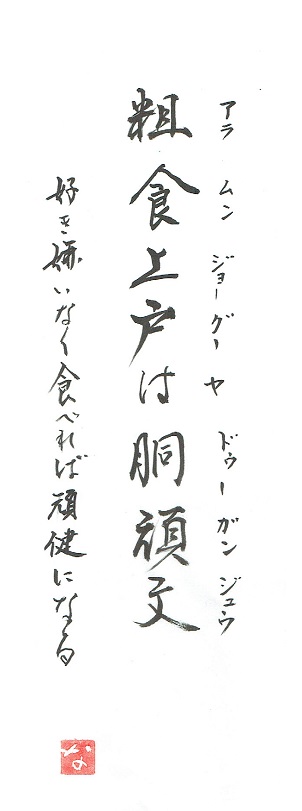 アラ ムン ジョーグー ヤ ドゥー ガン ジュウ
粗食上戸は胴頑丈
好き嫌いなく食べれば頑健になる
な